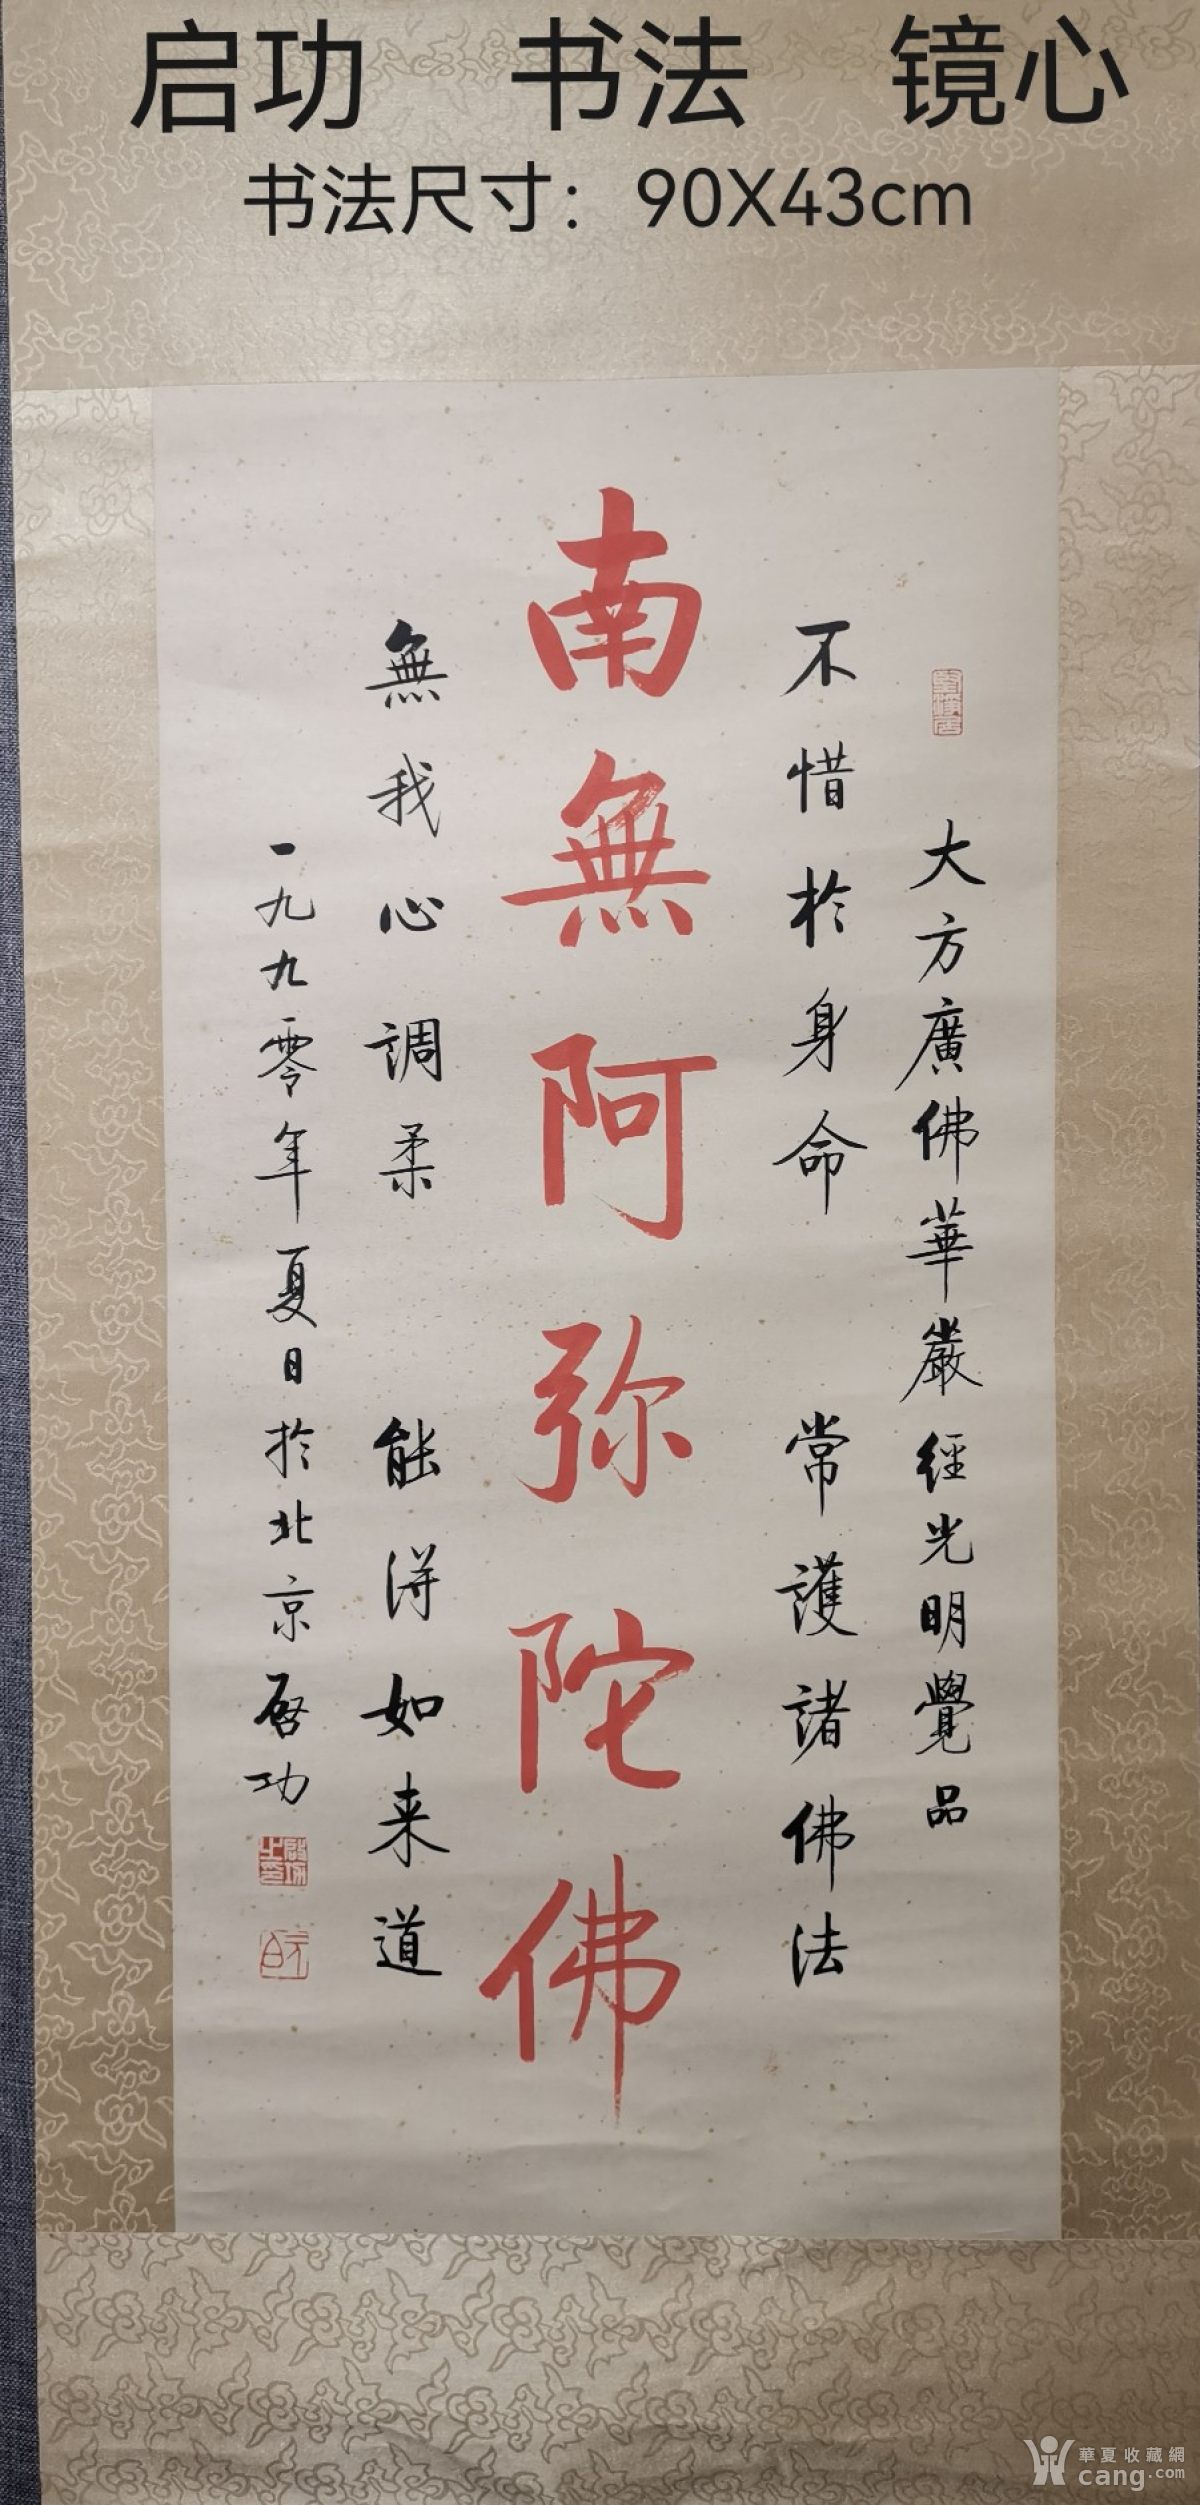 启功 书法 镜心
书法尺寸：90X43cm
大方廣佛華嚴經光明覺品
不惜於身命 常護諸佛法
南無阿弥陀佛
無我心調柔 能得如来道
一九九零年夏日於北京启功
啟功之印
元白
華夏收藏網
cang.com